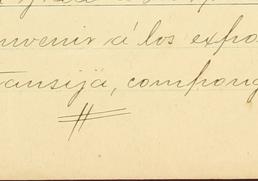 nvenir á los expo
ransija, compong